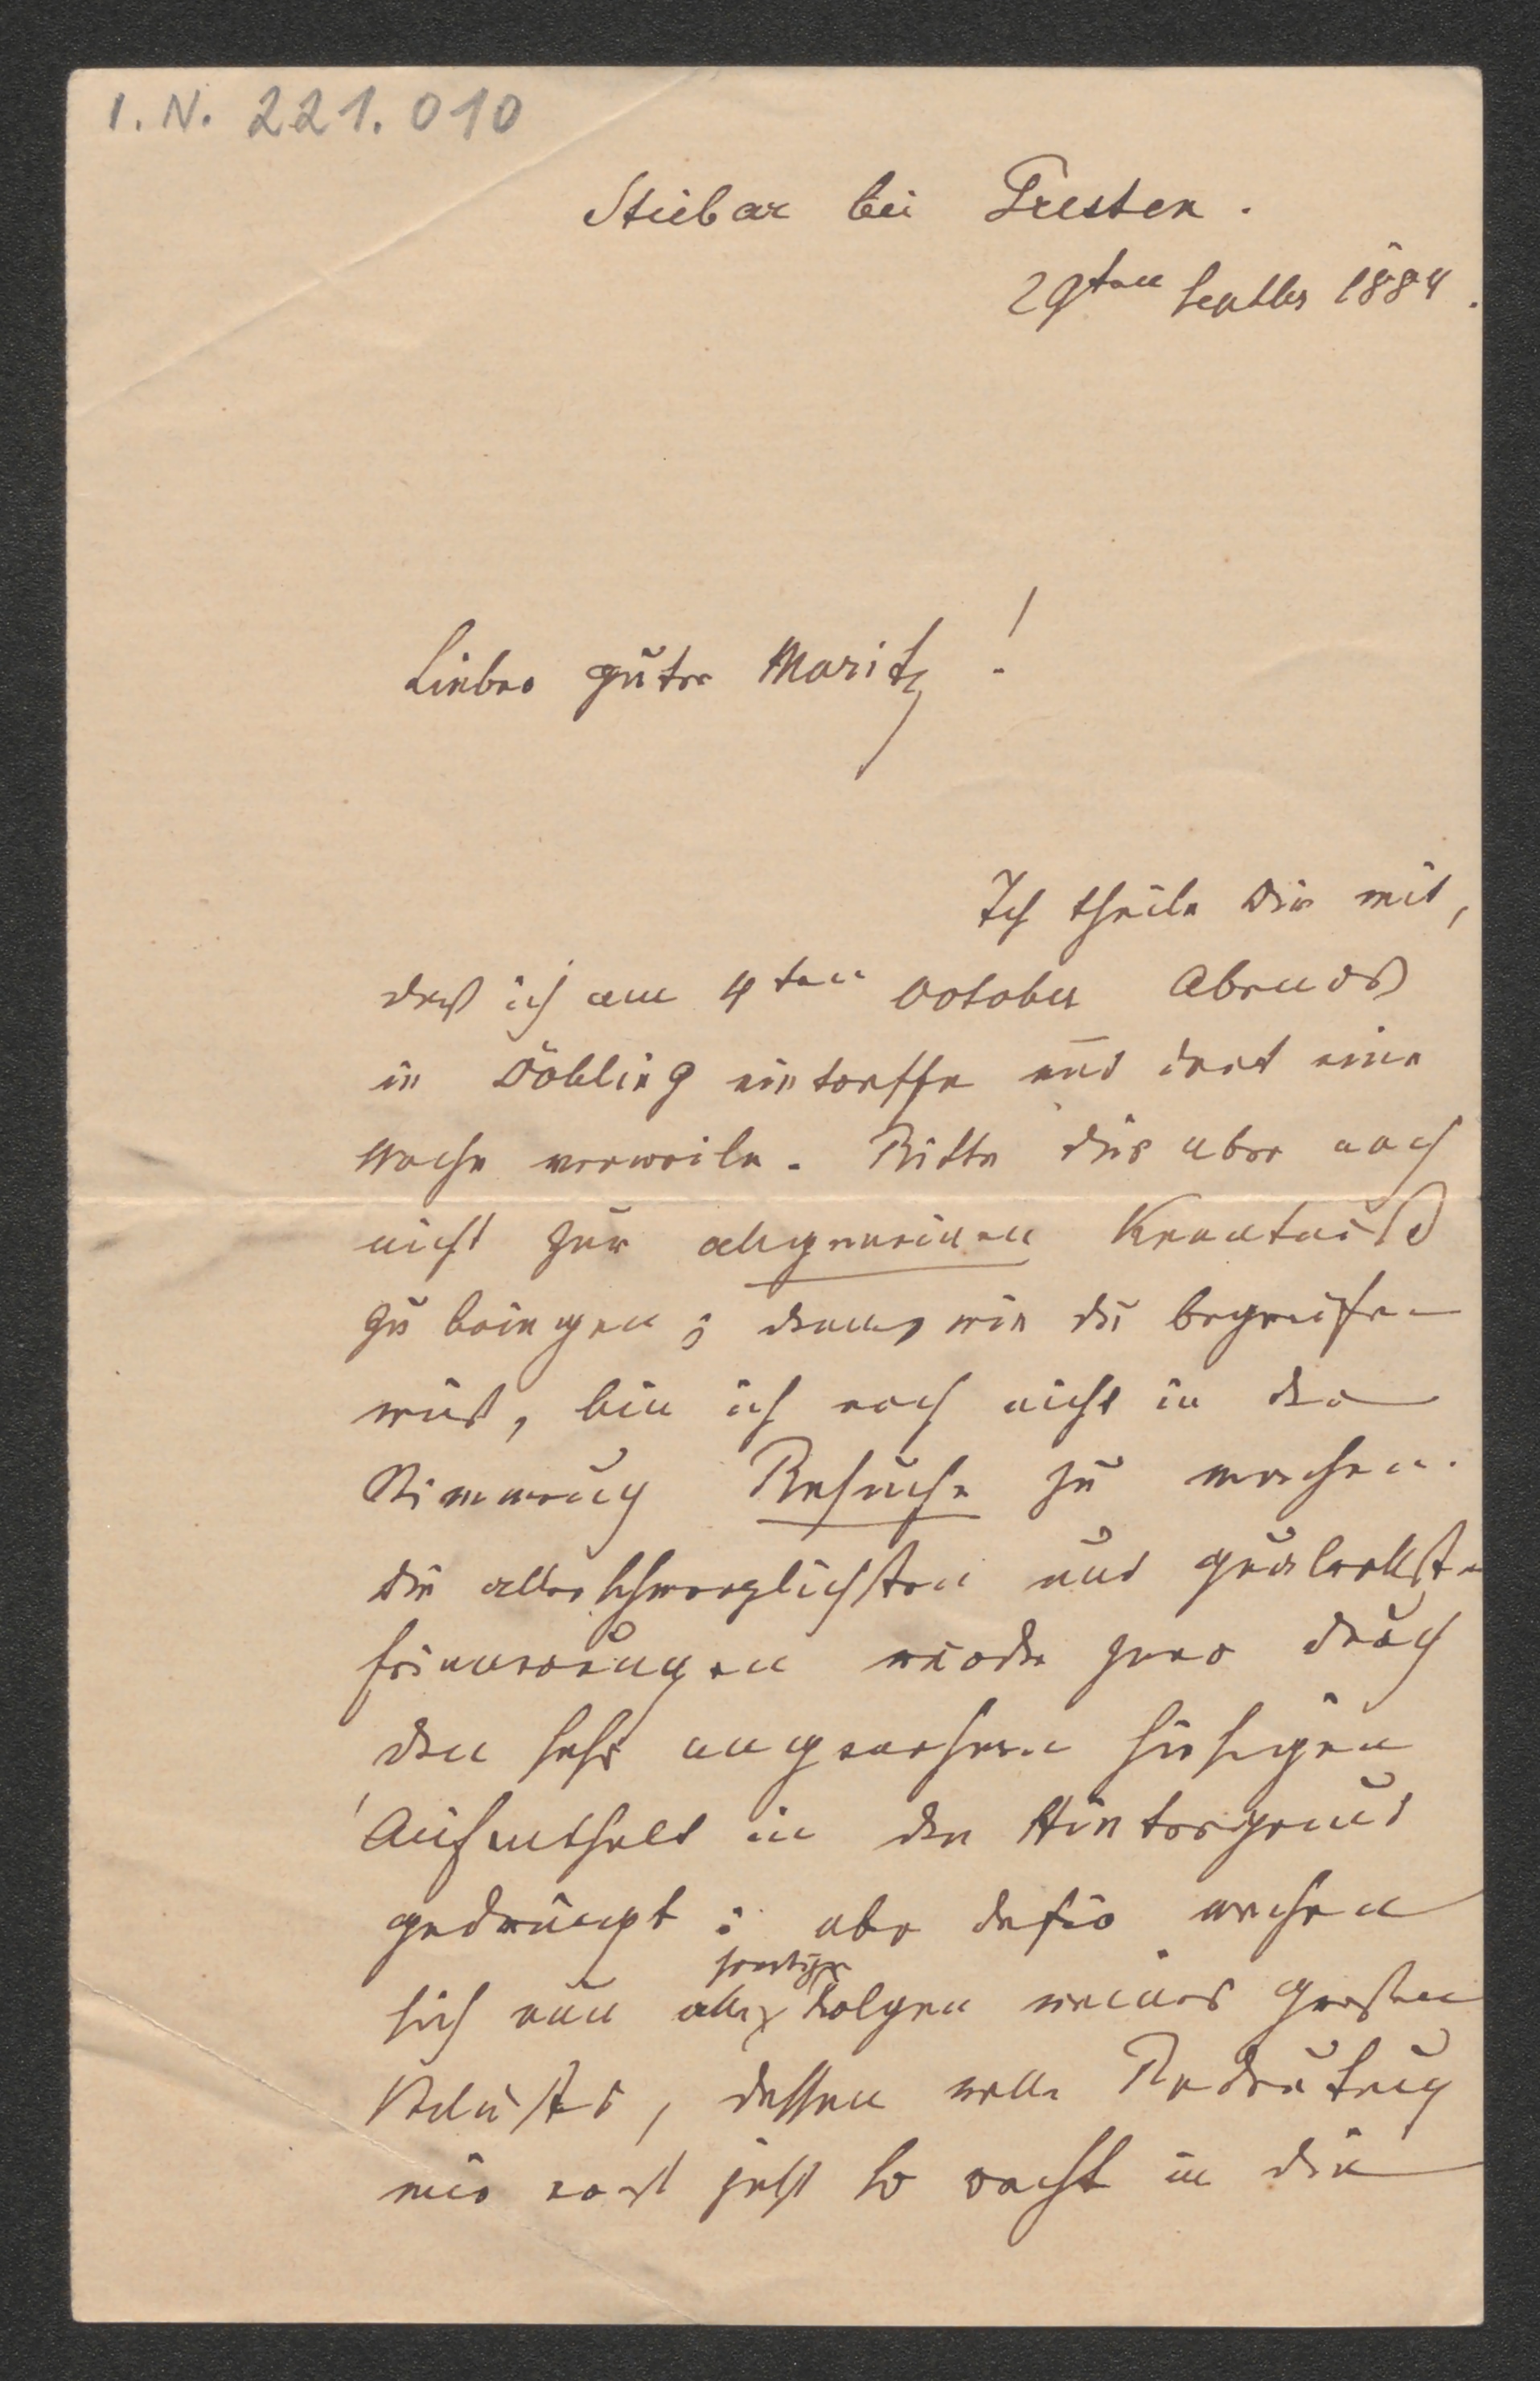 I.N. 221.010
Stiebar bei Gresten.
29ten Septbr 1884.
Lieber guter Moritz!
Ich theile Dir mit,
daß ich am 4ten October Abends
in Döbling eintreffe und dort eine
Woche verweile. Bitte dies aber noch
nicht zur allgemeinen Kenntniß
zu bringen; denn, wie du begreifen
wirst, bin ich noch nicht in der
Stimmung Besuche zu machen.
Die allerschmerzlichsten und qualvollsten
Erinnerungen wurden zwar durch
den sehr angenehmen hiesigen
Aufenthalt in den Hintergrund
gedrängt; aber dafür machen
sich nun alle sonstigen Folgen meines großen
Verlustes, dessen volle Bedeutung
mir erst jetzt so recht in die